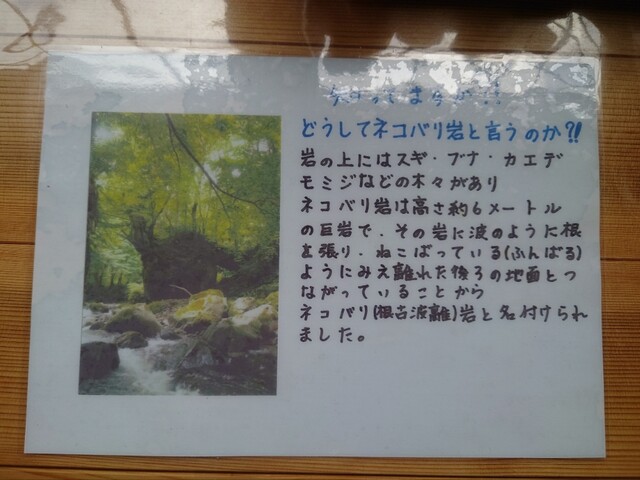 知ってますか!!
どうしてネコバリ岩と言うのか?!
岩の上にはスギ・ブナ・カエデ
モミジなどの木々があり
ネコバリ岩は高さ約6メートル
の巨岩で、その岩に波のように根
を張り、ねこばっている(ふんばる)
ようにみえ離れた後ろの地面とつ
ながっていることから
ネコバリ(根古波離)岩と名付けられ
ました。